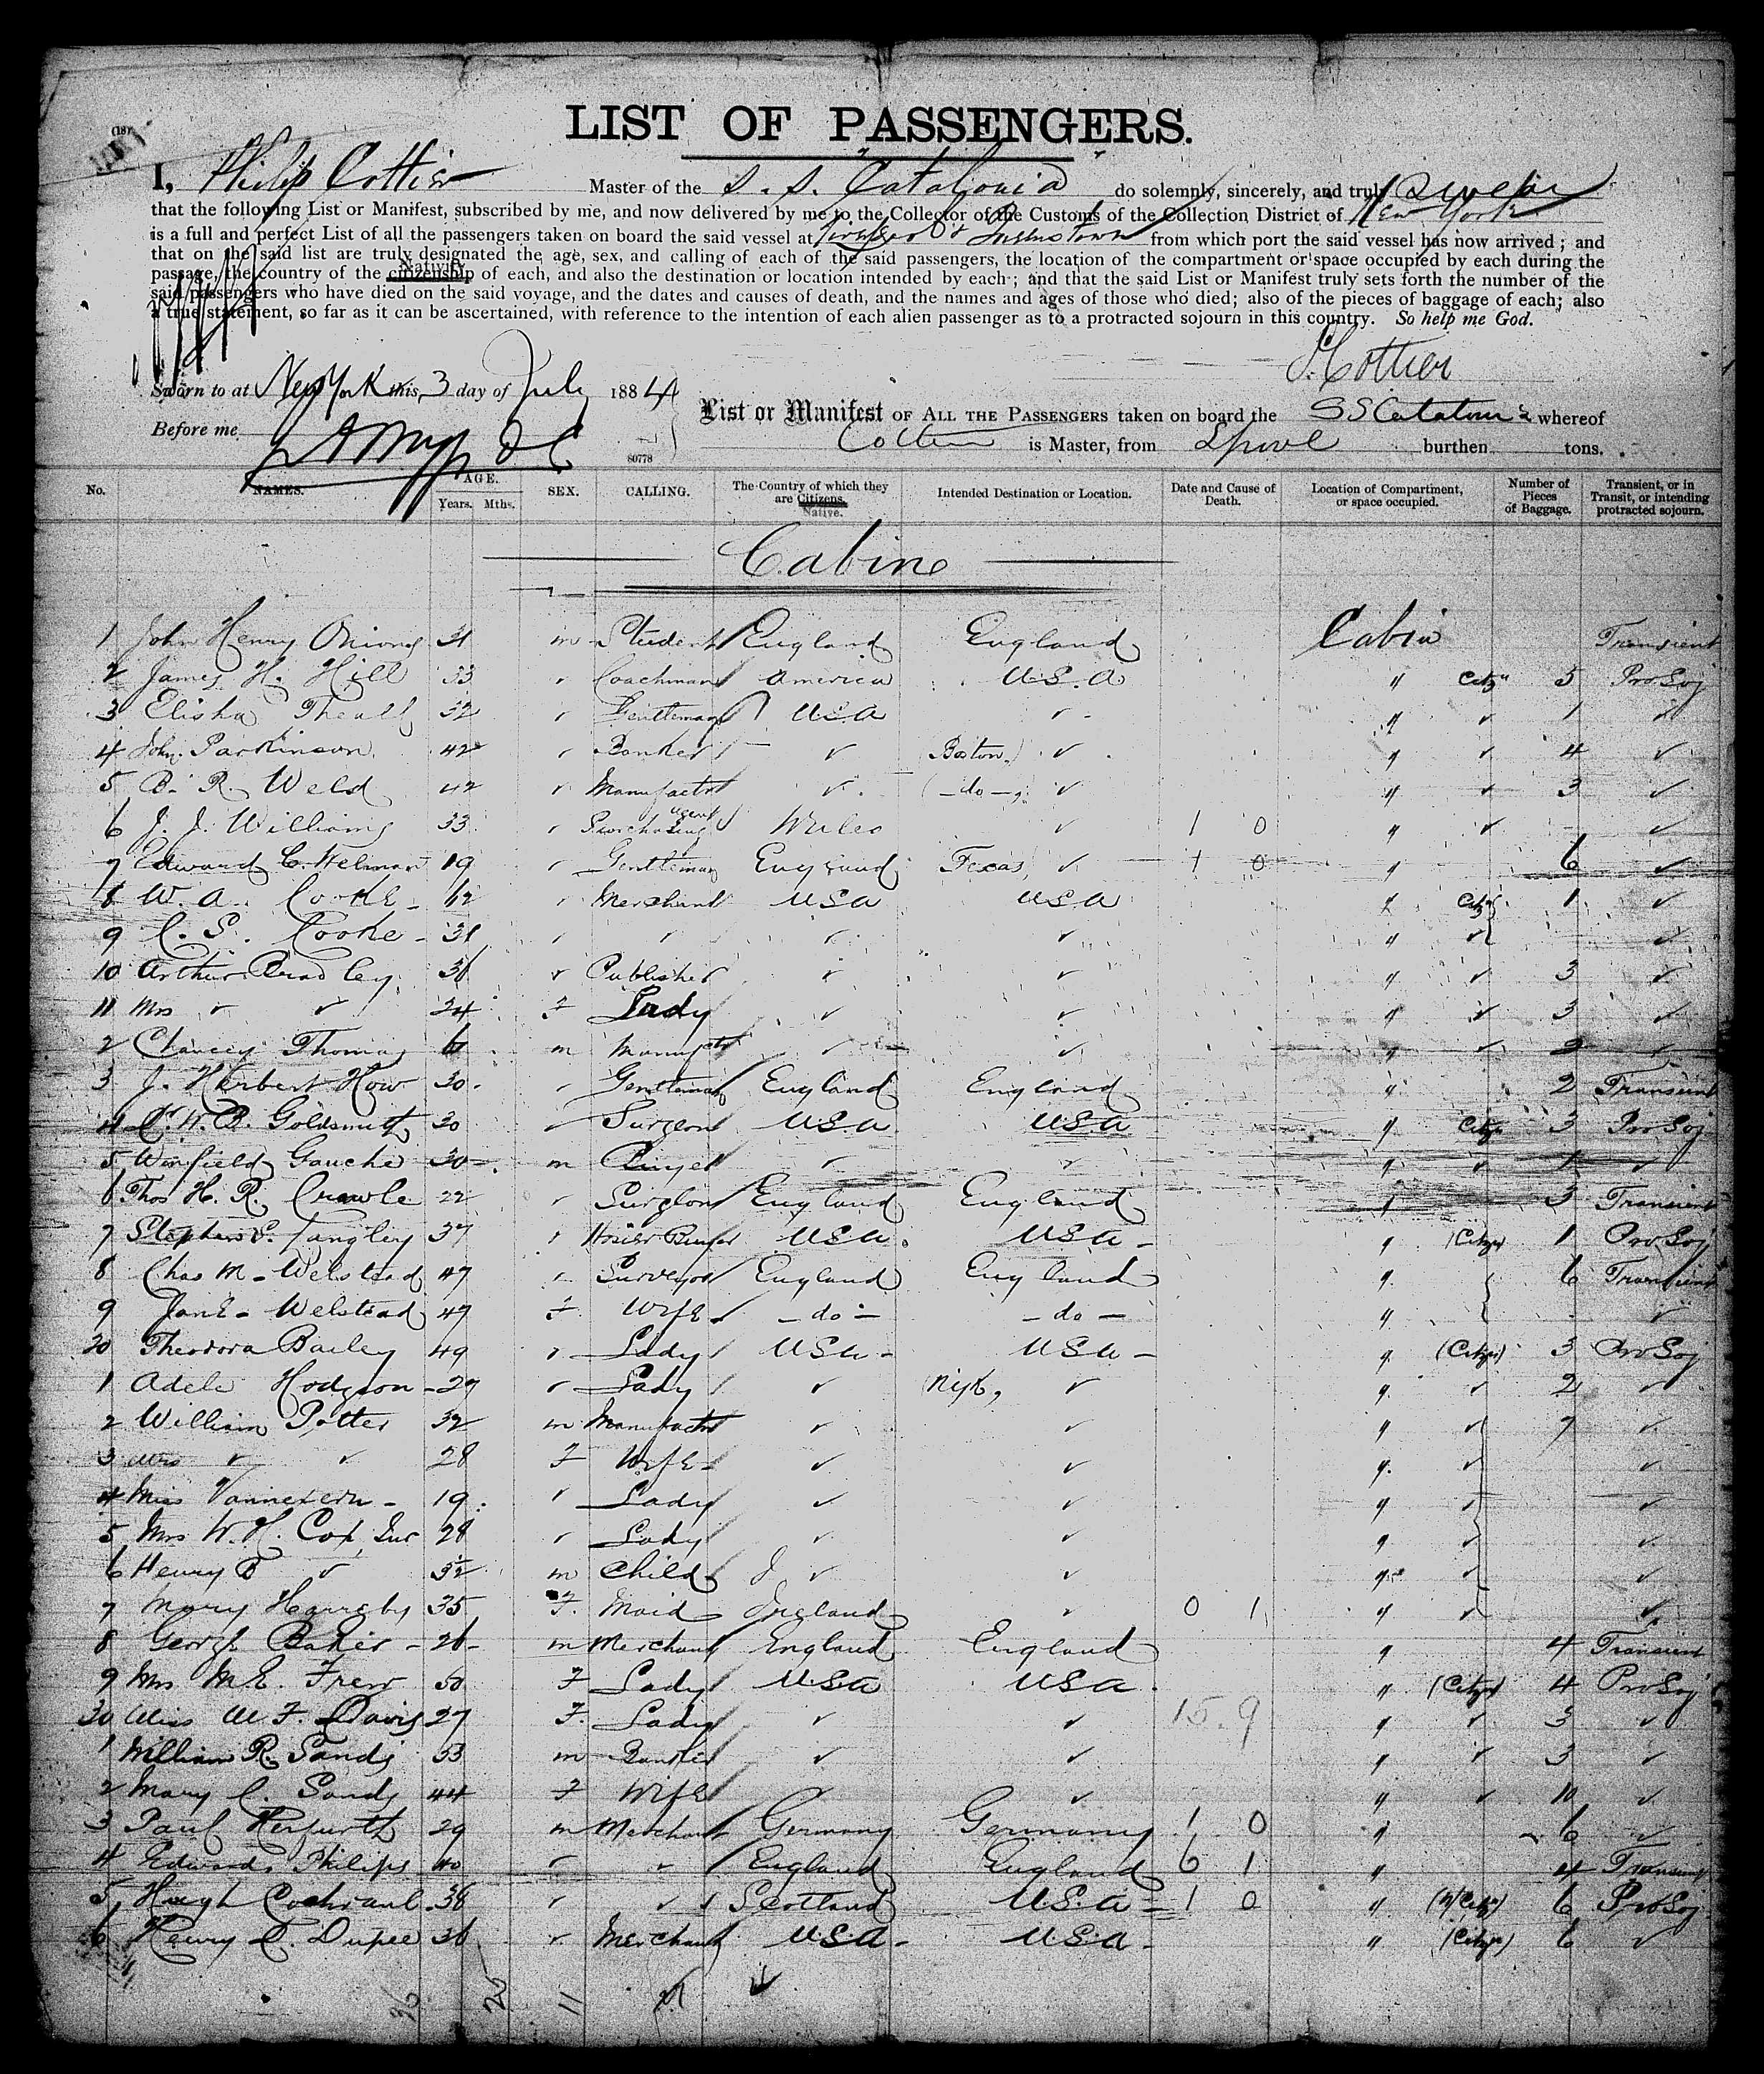 LIST OF PASSENGERS.
(18)
I, Philip Cottier Master of the S. S. Catalonia do solemnly, sincerely, and truly Swear
that the following List or Manifest, subscribed by me, and now delivered by me to the Collector of the Customs of the Collection District of New York
is a full and perfect List of all the passengers taken on board the said vessel at Liverpool & Queenstown from which port the said vessel has now arrived; and
that on the said list are truly designated the age, sex, and calling of each of the said passengers, the location of the compartment or space occupied by each during the
passage, the country of the citizenship Nativity of each, and also the destination or location intended by each; and that the said List or Manifest truly sets forth the number of the
said passengers who have died on the said voyage, and the dates and causes of death, and the names and ages of those who died; also of the pieces of baggage of each; also
a true statement, so far as it can be ascertained, with reference to the intention of each alien passenger as to a protracted sojourn in this country. So help me God.
P. Cottier
Sworn to at New York this 3 day of July 1884
List or Manifest OF ALL THE PASSENGERS taken on board the SS Catalonia whereof
Before me
Cottier is Master, from Lpool burthen tons.
80778
No. NAMES. AGE. Years. Mths. SEX. CALLING. The Country of which they are Citizens. Native. Intended Destination or Location. Date and Cause of Death. Location of Compartment, or space occupied. Number of Pieces of Baggage. Transient, or in Transit, or intending protracted sojourn.
Cabine
1 John Henry Onions 31 m Student England England Cabin Transient
2 James H. Hill 33 " Coachman America U.S.A " Citzn 5 Pro Soj
3 Elisha Theall 32 " Gentleman USA " " " 1 "
4 John Parkinson 42 " Banker " (Boston) " " " 4 "
5 B. R. Weld 42 " Manufactr " (-do-) " " " 3 "
6 J. J. Williams 33 " Purchasing agent Wales " 1 0 " " "
7 Edward C. Welman 19 " Gentleman England Texas " 1 0 " 6 "
8 W. A. Cooke 62 " Merchant USA USA " Citzn 1 "
9 C. S. Cooke 31 " " " " " " "
10 Arthur Bradley 36 " Publisher " " " " 3 "
11 Mrs " " 24 F Lady " " " " 3 "
2 Chancey Thomas m Manufctr " " " " 2 "
3 J. Herbert How 30 " Gentleman England England " 2 Transient
4 Dr. W. B. Goldsmith 30 " Surgeon USA USA " Citzn 3 Pro Soj
5 Winfield Gauche 30 m " " " " 1 "
6 Thos H. R. Crawle 22 " Surgeon England England " 3 Transient
7 Stephen S. Langley 37 " USA USA " (Citzn) 1 Pro Soj
8 Chas M. Welstead 47 " Surveyor England England " 6 Transient
9 Jane Welstead 49 F Wife -do- -do- " "
20 Theodora Bailey 49 " Lady USA USA " (Citzn) 3 Pro Soj
1 Adele Hodgson 27 " Lady " (NYk) " " " 2 "
2 William Potter 32 m Manufactr " " " " 7 "
3 Mrs " " 28 F Wife " " " " "
4 Miss 19 " Lady " " " " "
5 Mrs W. H. Cox, Jur 28 " Lady " " " " "
6 Henry B " 3½ m Child " " " " "
7 Mary Hannaby 35 F. Maid Ireland " 0 1 " " "
8 George Baker 26 m Merchant England England " 4 Transient
9 Mrs M. E. Frew 50 F Lady USA USA " (Citzn) 4 Pro Soj
30 Miss M. F. Davis 27 F. Lady " " 15.9 " " 3 "
1 William R. Sands 53 m Banker " " " " 3 "
2 Mary C. Sands 44 F Wife " " " " 10 "
3 Paul Herfurth 29 m Merchant Germany Germany 1 0 " 6 "
4 Edward Philips 40 " " England England 6 1 " 4 Transient
5 Hugh Cochrane 38 " " Scotland U.S.A 1 0 " (N Citzn) 6 Pro Soj
6 Henry D. Dupee 36 " Merchant USA USA " (Citzn) 6 "
36 11